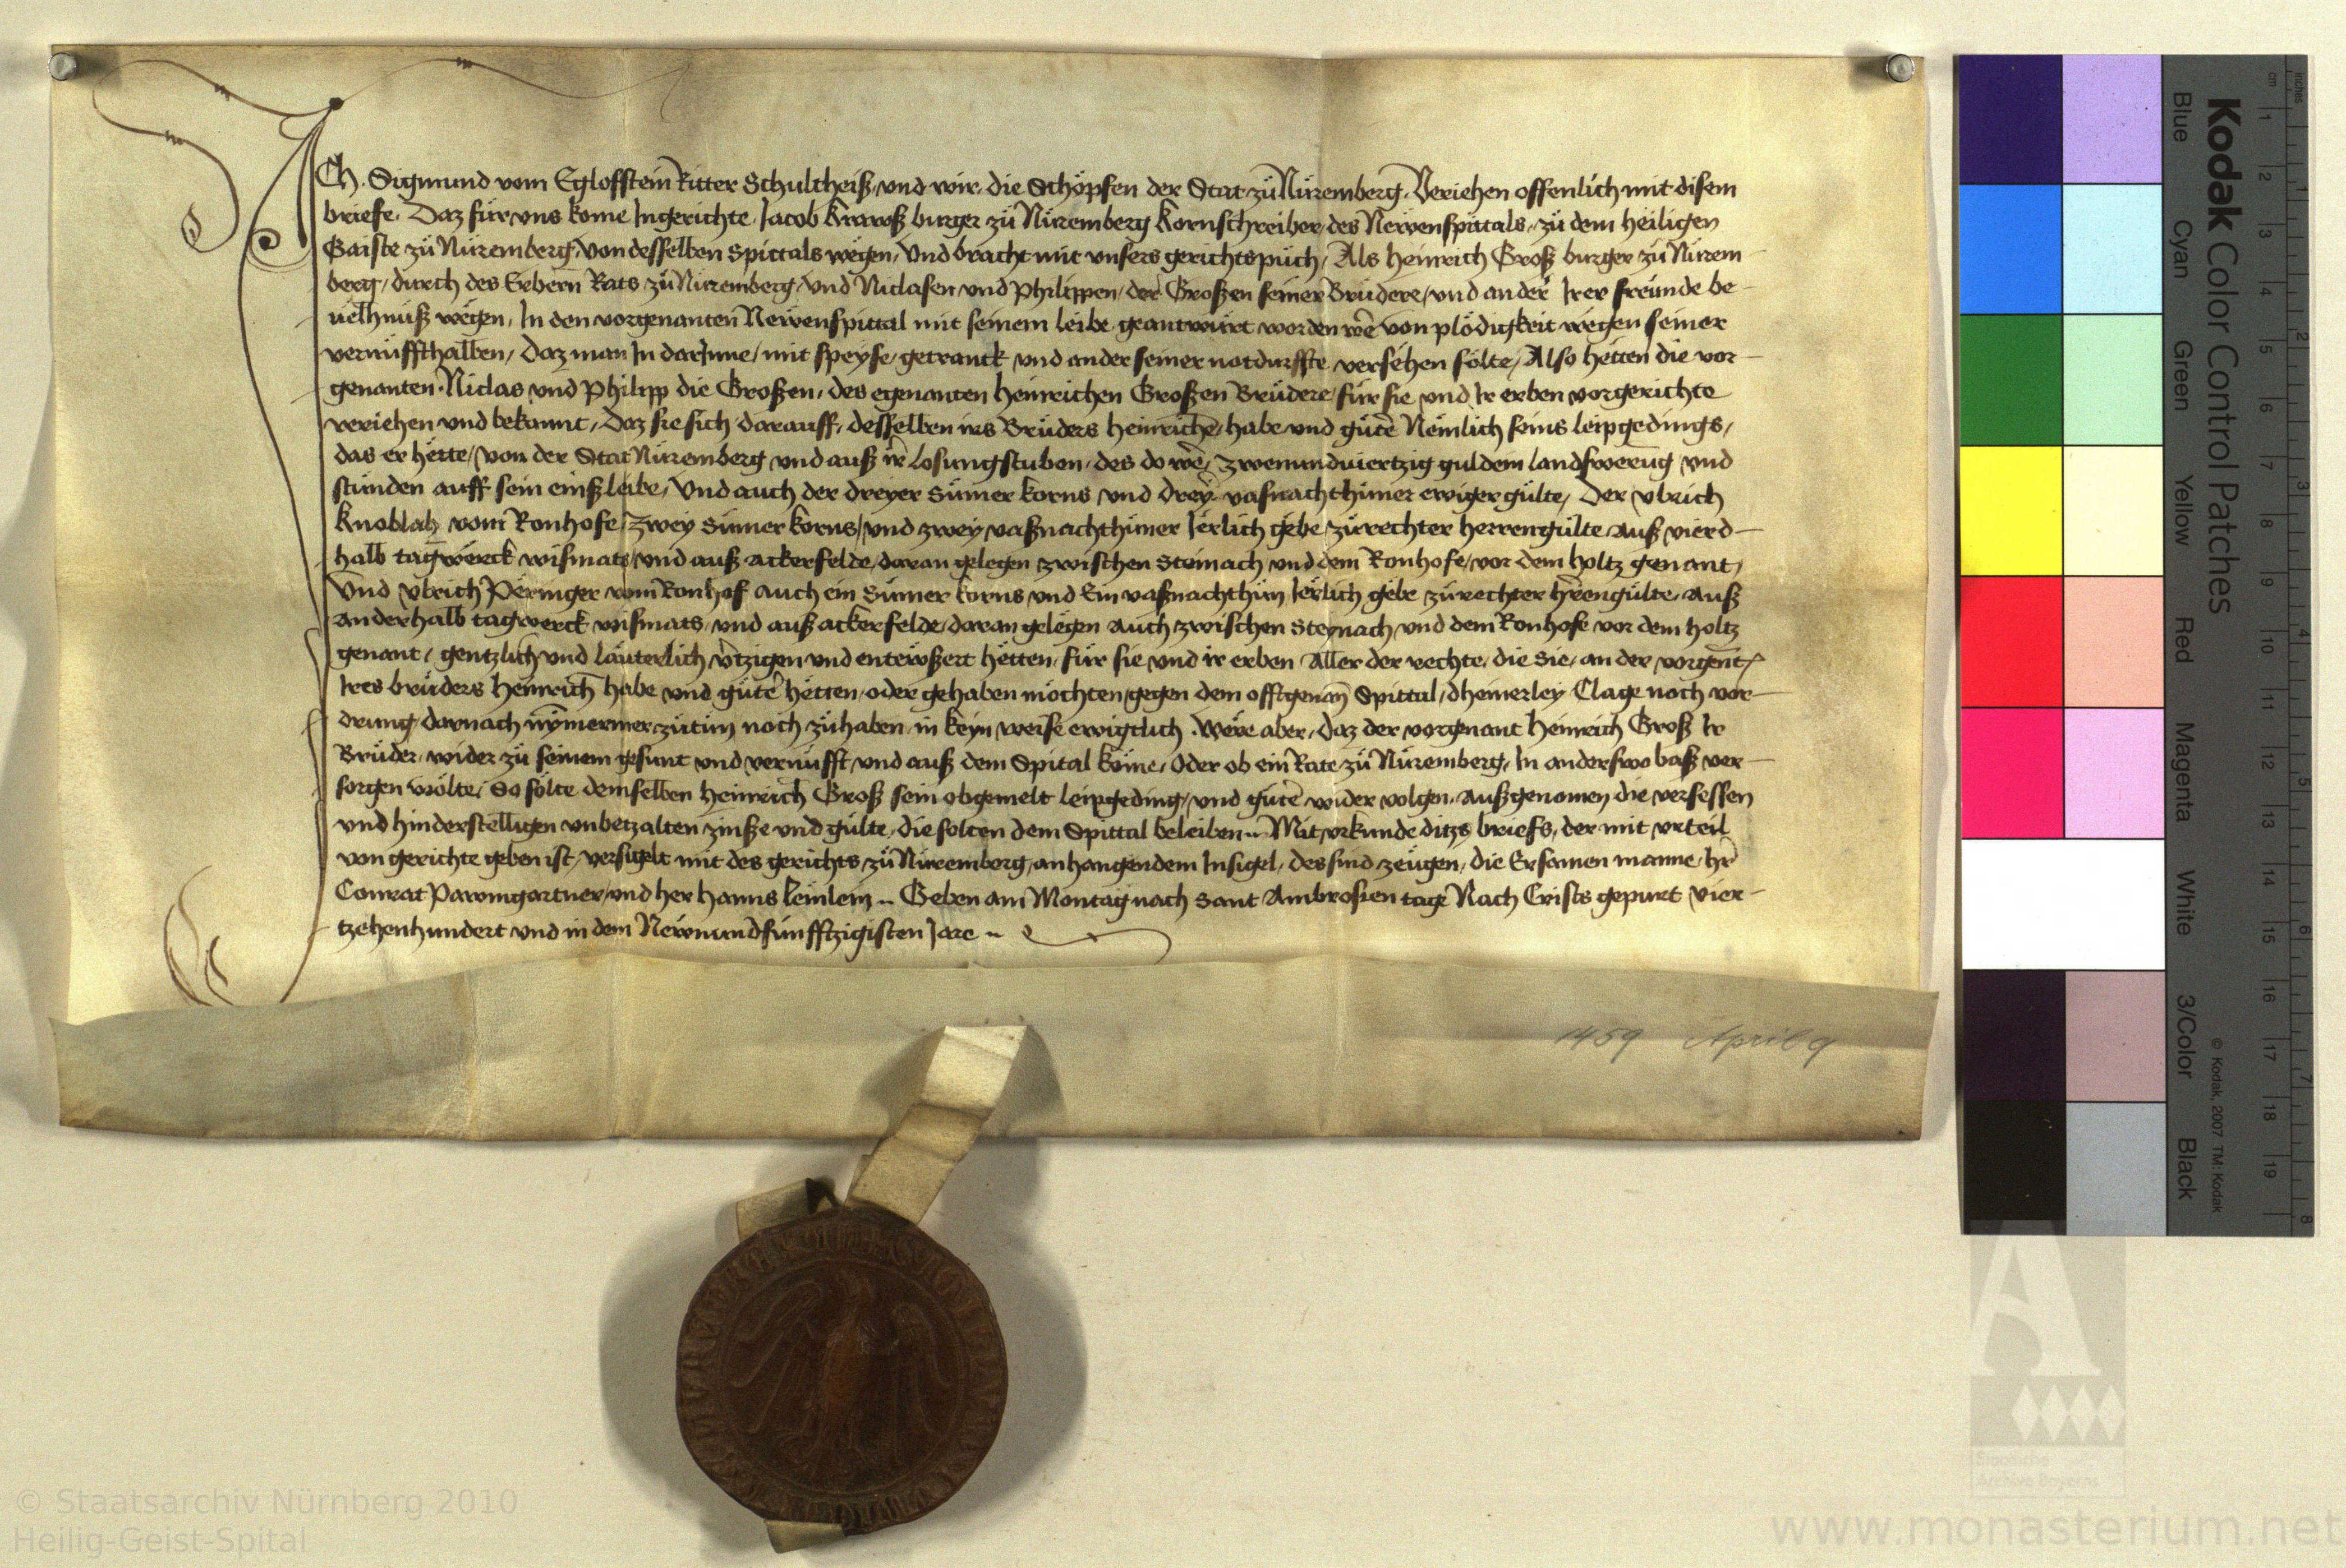 ICh. Sigmund vom Egloffstein Ritter Schultheiß, vnd wir die Schöpfen der Stat zü Nüremberg. Veriehen offenlich mit disem
briefe. Daz für vns kome Ingerichte, Jacob burger zü Nüremberg Kornschreiber, des Newenspittals, zü dem heiligen
Gaiste zü Nüremberg, von desselben Spittals wegen, Vnd bracht mit vnsers gerichtspüch, Als Heinrich Groß burger zü Nürem
berg, durch des Erbern Rats zü Nüremberg, vnd Niclasen vnd Philippen, der Großen seiner Brüdere, vnd ander Irer freünde be
uelhnüß wegen, In den vorgenanten Newenspittal mit seinem leibe geantwürt worden wē von plödigkeit wegen seiner
vernüffthalben, Daz man In darInne, mit speyse, getranck vnd ander seiner notdurffte versehen sölte, Also hetten die vor
genanten Niclas vnd Philipp die Großen, des egenanten Heinrichen Großen Brüdere, für sie vnd Ir erben vorgerichte
veriehen vnd bekannt, Daz sie sich darauff, desselben irs Brüders Heinrichē, habe vnd gütē Nemlich seins leipgedings,
das er hette, von der Stat Nüremberg vnd auß ir Losungstuben, des do wē, zwenundviertzig guldein landßwerung vnd
stünden auff sein einß leibe, Vnd auch der dreyer Sümer korns vnd drey vasnachthüner ewiger gülte, Der Vlrich
Knoblah vom Ronhofe, Zwey Sümer korns, vnd zwey vaßnachthüner Jerlich gebe zürechter herrengülte, auß vierd
halb tagwerck wismats, vnd auß ackerfelde, daran gelegen zwischen Steinach vnd dem Ronhofe, vor dem holtz genant,
Vnd Vlrich Peringer vom Ronhof auch ein Sümer korns vnd Ein vaßnachthün Jerlich gebe zürechter hrengülte, auß
anderhalb tagwerck wismats, vnd auß ackerfelde, daran gelegen auch zwischen Steynach vnd dem Ronhofe vor dem holtz
genant, gentzlich vnd läuterlich v̄tzigen vnd entewßert hetten, für sie vnd ir erben Aller der rechte, die Sie, an der vorgent
Ires brüders Heinrich habe vnd gütē hetten, oder gehaben möchten, gegen dem offtgenanͫ Spittal, dheinerley Clage noch vor
drung, darnach nymermer zütün noch zühaben, in keyn weise ewigclich. Were aber, daz der vorgenant Heinrich Groß Ir
Brüder, wider zü seinem gesunt vnd vernüfft, vnd auß dem Spital köme, Oder ob ein Rate zü Nüremberg, In anderswo baß ver
sorgen wölte, So sölte demselben Heinrich Groß sein obgemelt leipgeding, vnd gütē wider volgen, Außgenomen die versessen
vnd hinderstelligen vnbetzalten zinße vnd gülte, die solten dem Spittal beleiben. Mit vrkunde ditzs briefs, der mit vrteil
von gerichte geben ist, versigelt mit des gerichts zü Nüremberg, anhangendem Insigel, des sind zeügen, die Ersamen manne, hr̄
Conrat Pawmgartner, vnd her Hanns Geben am Montag nach Sant Ambrosien tage Nach Crists gepurt Vier
tzehenhundert vnd in dem Newnundfünfftzigisten Jare
1459 April 9
Kodak Color Control Patches
Blue Cyan Green Yellow Red Magenta White 3/Color Black
© Kodak, 2007 TM: Kodak
inches 1 2 3 4 5 6 7 8
cm 1 2 3 4 5 6 7 8 9 10 11 12 13 14 15 16 17 18 19
A
Staatliche
Archive Bayerns
© Staatsarchiv Nürnberg 2010
Heilig-Geist-Spital
www.monasterium.net